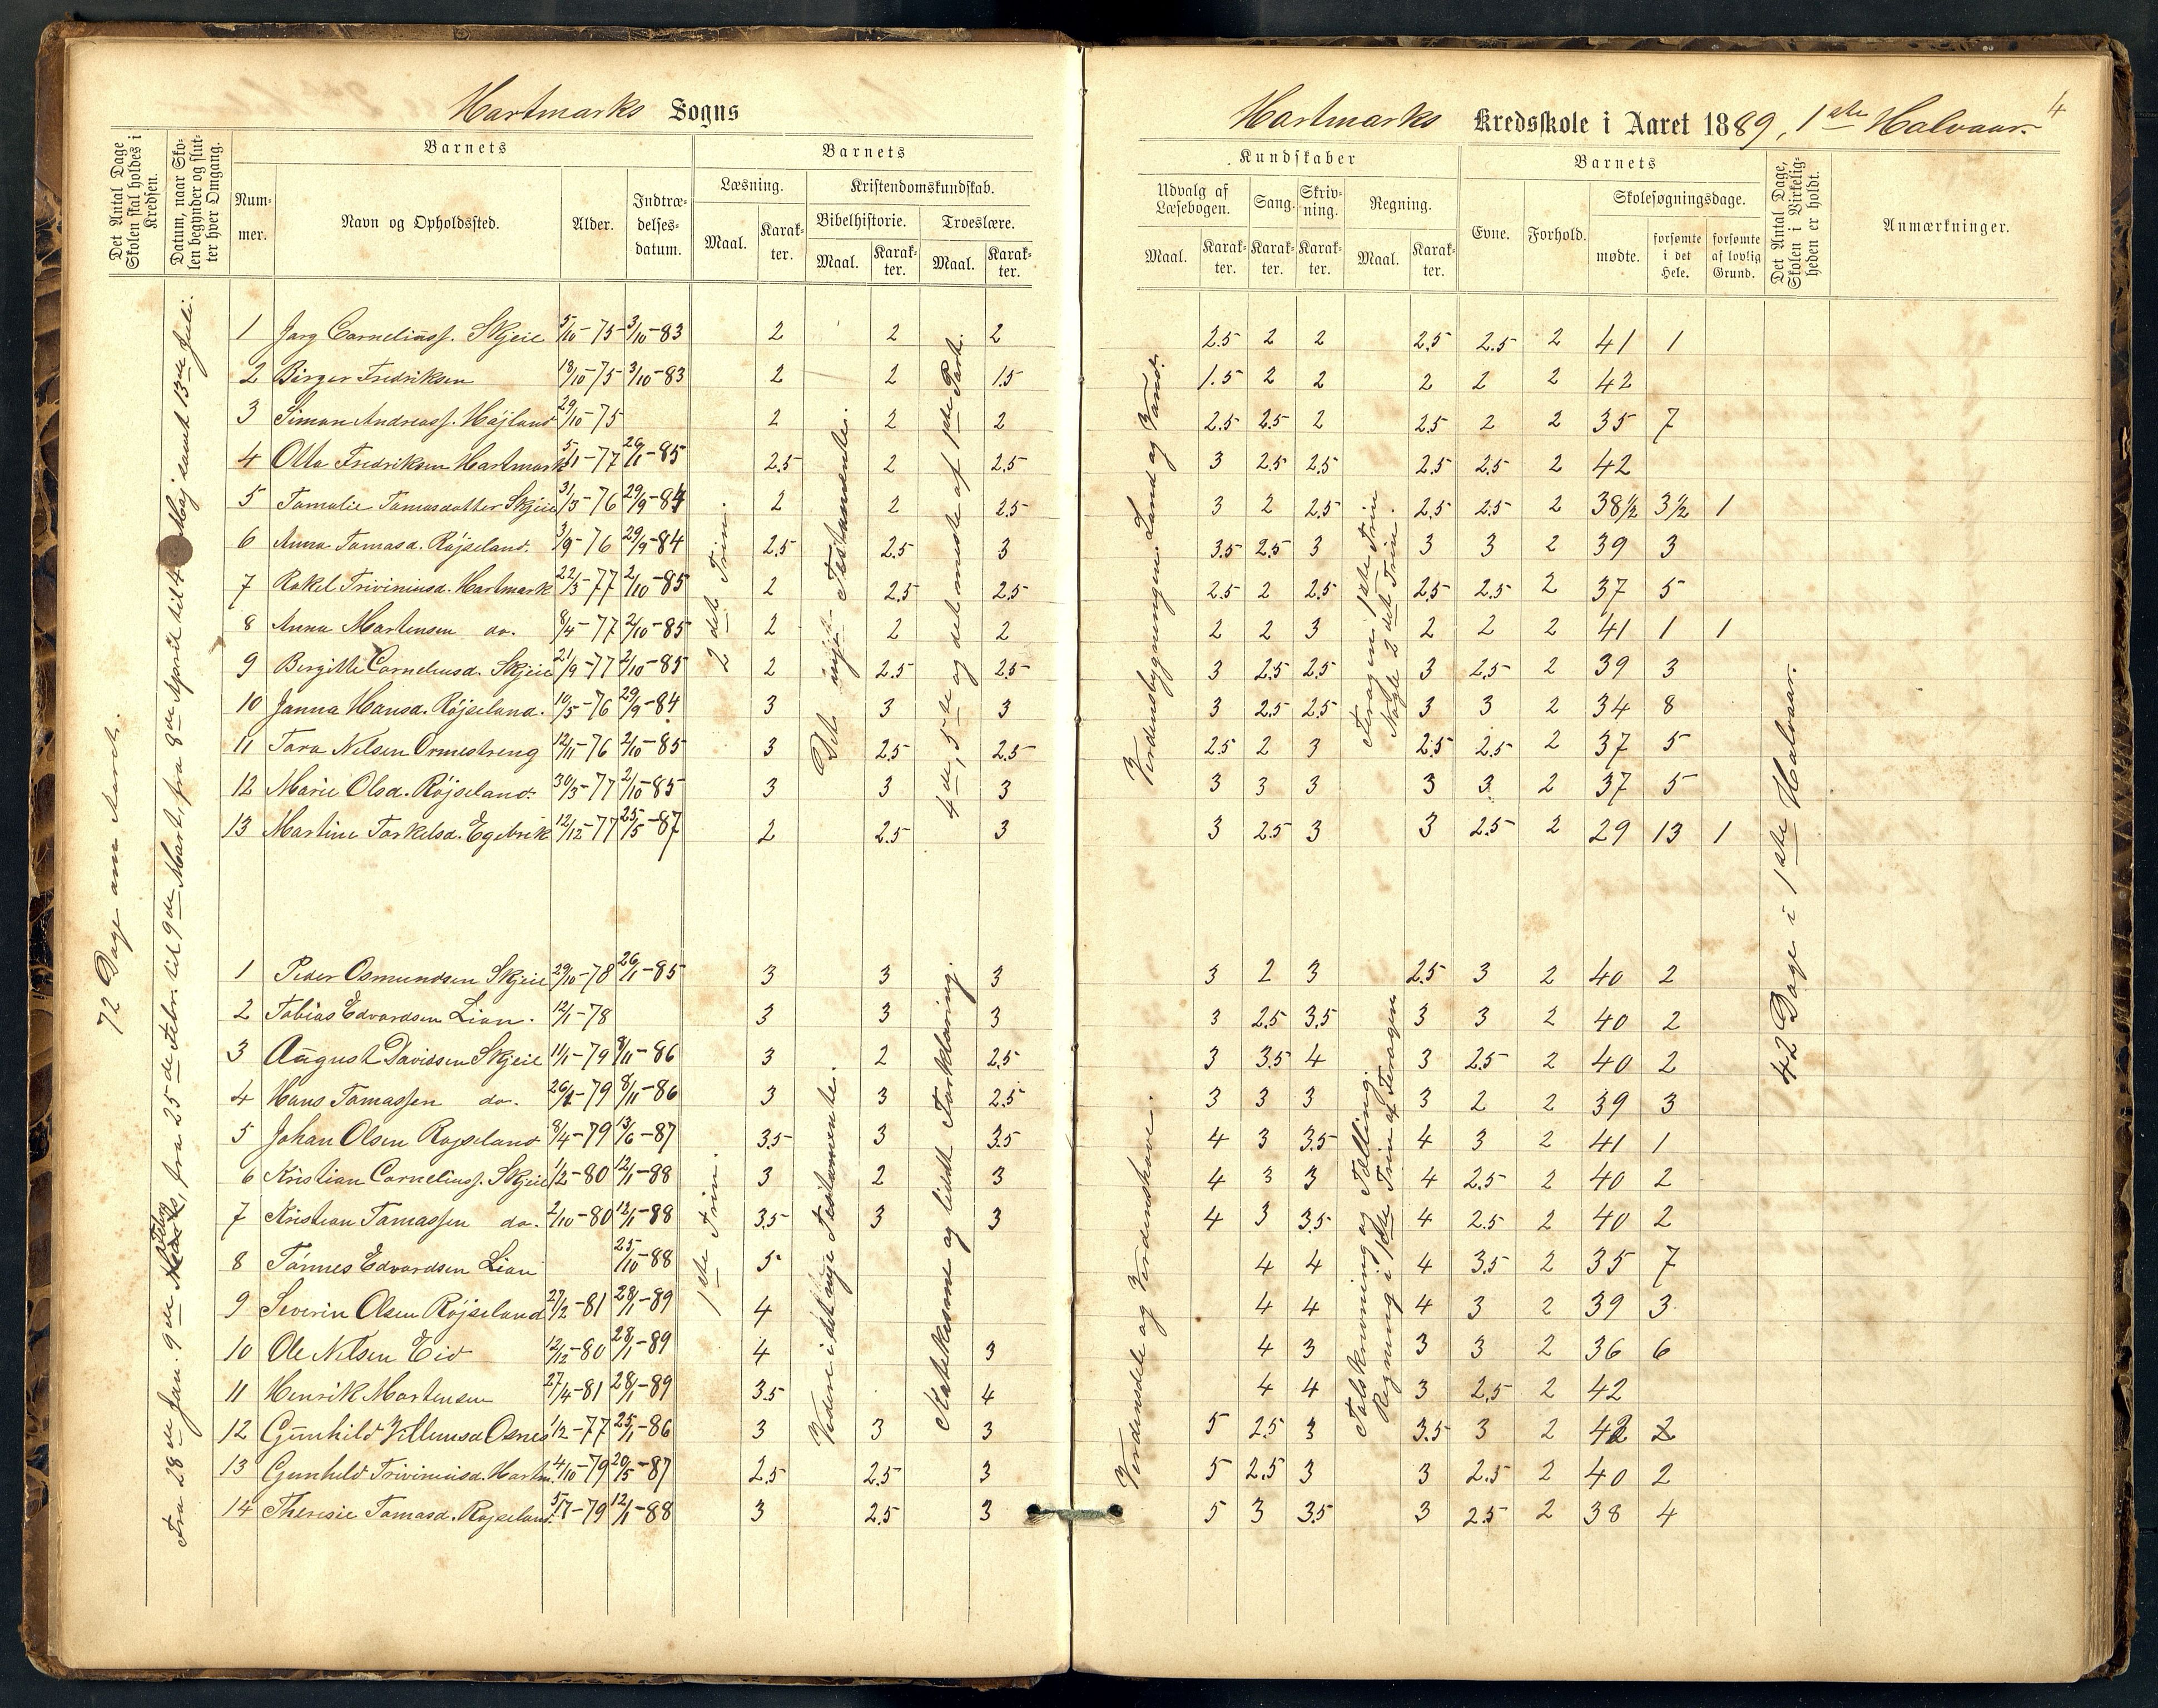 Hartmarks Sogns
Det Antal Dage Skolen skal holdes i Kredsen.
Datum, naar Skolen begynder og slutter hver Omgang.
Barnets
Nummer.
Navn og Opholdssted.
Alder.
Indtrædelsesdatum.
Barnets
Læsning.
Maal.
Karakter.
Kristendomskundskab.
Bibelhistorie.
Maal.
Karakter.
Troeslære.
Maal.
Karakter.
72 Dage om Aaret.
Fra 28de Jan. 9de Febr., fra 25de Febr. til 9de Mart, fra 8de April til 4 Maj samt 13de Juli.
1 Jørg Corneliusf. Skjeie 5/10-75 3/10-83 2 2 2
2 Birger Fredriksen 18/10-75 3/10-83 2 2 1.5
3 Simon Andreasf. Højland 29/10-75 2 2 2
4 Otto Fredriksen Hartmark 5/1-77 26/1-85 2.5 2 2.5
5 Tomalie Tomasdatter Skjeie 31/3-76 29/9-84 2 2 2.5
6 Anna Tomasd. Røjseland. 3/9-76 29/9-84 2.5 2.5 3
7 Rakel Triviniusd. Hartmark 22/3-77 2/10-85 2 2.5 2.5
8 Anna Martensen do. 8/4-77 2/10-85 2 2 2
9 Bergitte Corneliusd. Skjeie 21/9-77 2/10-85 2 2.5 2.5
10 Janna Hansd. Røjseland. 10/5-76 29/9-84 3 3 3
11 Tora Nilsen Ormestreng 12/11-76 2/10-85 3 2.5 2.5
12 Marie Olsd. Røjseland. 30/3-77 2/10-85 3 3 3
13 Martine Torkelsd. Egebrik 12/12-77 25/5-87 2 2.5 3
2det Trin.
Det nye Testamente.
4de, 5te og det meste af 1ste Part.
1 Peder Osmundsen Skjeie 29/10-78 26/1-85 3 3 3
2 Tobias Edvardsen Lian. 12/1-78 3 3 3
3 August Davidsen Skjeie 11/1-79 8/11-86 3 2 2.5
4 Hans Tomassen do. 26/2-79 8/11-86 3 3 2.5
5 Johan Olsen Røjseland 8/4-79 13/6-87 3.5 3 3.5
6 Kristian Corneliusf. Skjeie 1/2-80 12/1-88 3 2 3
7 Kristian Tomassen do. 2/10-80 12/1-88 3.5 3 3
8 Tønnes Edvardsen Lian 25/10-88 5
9 Severin Olsen Røjseland 27/2-81 28/1-89 4
10 Ole Nilsen Eid 12/12-80 28/1-89 4 3
11 Henrik Mortensen 27/4-81 28/1-89 3.5 4
12 Gunhild Villumsd Osnes 1/2-77 25/1-86 3 3 3
13 Gunhild Triviniusd. Hartm. 4/10-79 20/5-87 2.5 2.5 3
14 Theresie Tomasd. Røjseland. 5/7-79 12/1-88 3 2.5 3
1ste Trin.
Videre i det nye Testamente.
Katekismme og lidt Forklaring.
Hartmarks Kredsskole i Aaret 1889, 1ste Halvaar. 4
Kundskaber
Udvalg af Læsebogen.
Maal.
Karakter.
Sang.
Karakter.
Skrivning.
Karakter.
Regning.
Maal.
Karakter.
Barnets
Evne.
Forhold.
Skolesøgningsdage.
mødte.
forsømte i det Hele.
forsømte af lovlig Grund.
Det Antal Dage, Skolen i Virkeligheden er holdt.
Anmærkninger.
2.5 2 2 2.5 2.5 2 41 1
1.5 2 2 2 2 2 42
2.5 2.5 2 2.5 2 2 35 7
3 2.5 2.5 2.5 2.5 2 42
3 2 2.5 2.5 2.5 2 38½ 3½ 1
3.5 2.5 3 3 3 2 39 3
2.5 2 2.5 2.5 2.5 2 37 5
2 2 3 2 2 2 41 1 1
3 2.5 2.5 3 2.5 2 39 3
3 2.5 2.5 3 3 2 34 8
2.5 2 3 2.5 2.5 2 37 5
3 3 3 3 3 2 37 5
3 2.5 3 3 2.5 2 29 13 1
Verdensbygningen. Land og Vand.
Firragen i 1ste Trin
Nogle 2det Trin.
42 Dage i 1ste Halvaar.
3 2 3 2.5 3 2 40 2
3 2.5 3.5 3 3 2 40 2
3 3.5 4 3 2.5 2 40 2
3 3 3 3 2 2 39 3
4 3 3.5 4 3 2 41 1
4 3 3 4 2.5 2 40 2
4 3 3.5 4 2.5 2 40 2
4 4 4 3.5 2 35 7
4 4 4 3 2 39 3
4 3 3 3 2 36 6
4 4 3 2.5 2 42
5 2.5 3 3.5 3 2 42 2
5 2.5 3 3 2.5 2 40 2
5 3 3.5 3 2.5 2 38 4
Verdensdele og Verdenshave.
Talskrivning og Tælling.
Regning i 1ste Trin af Firragen